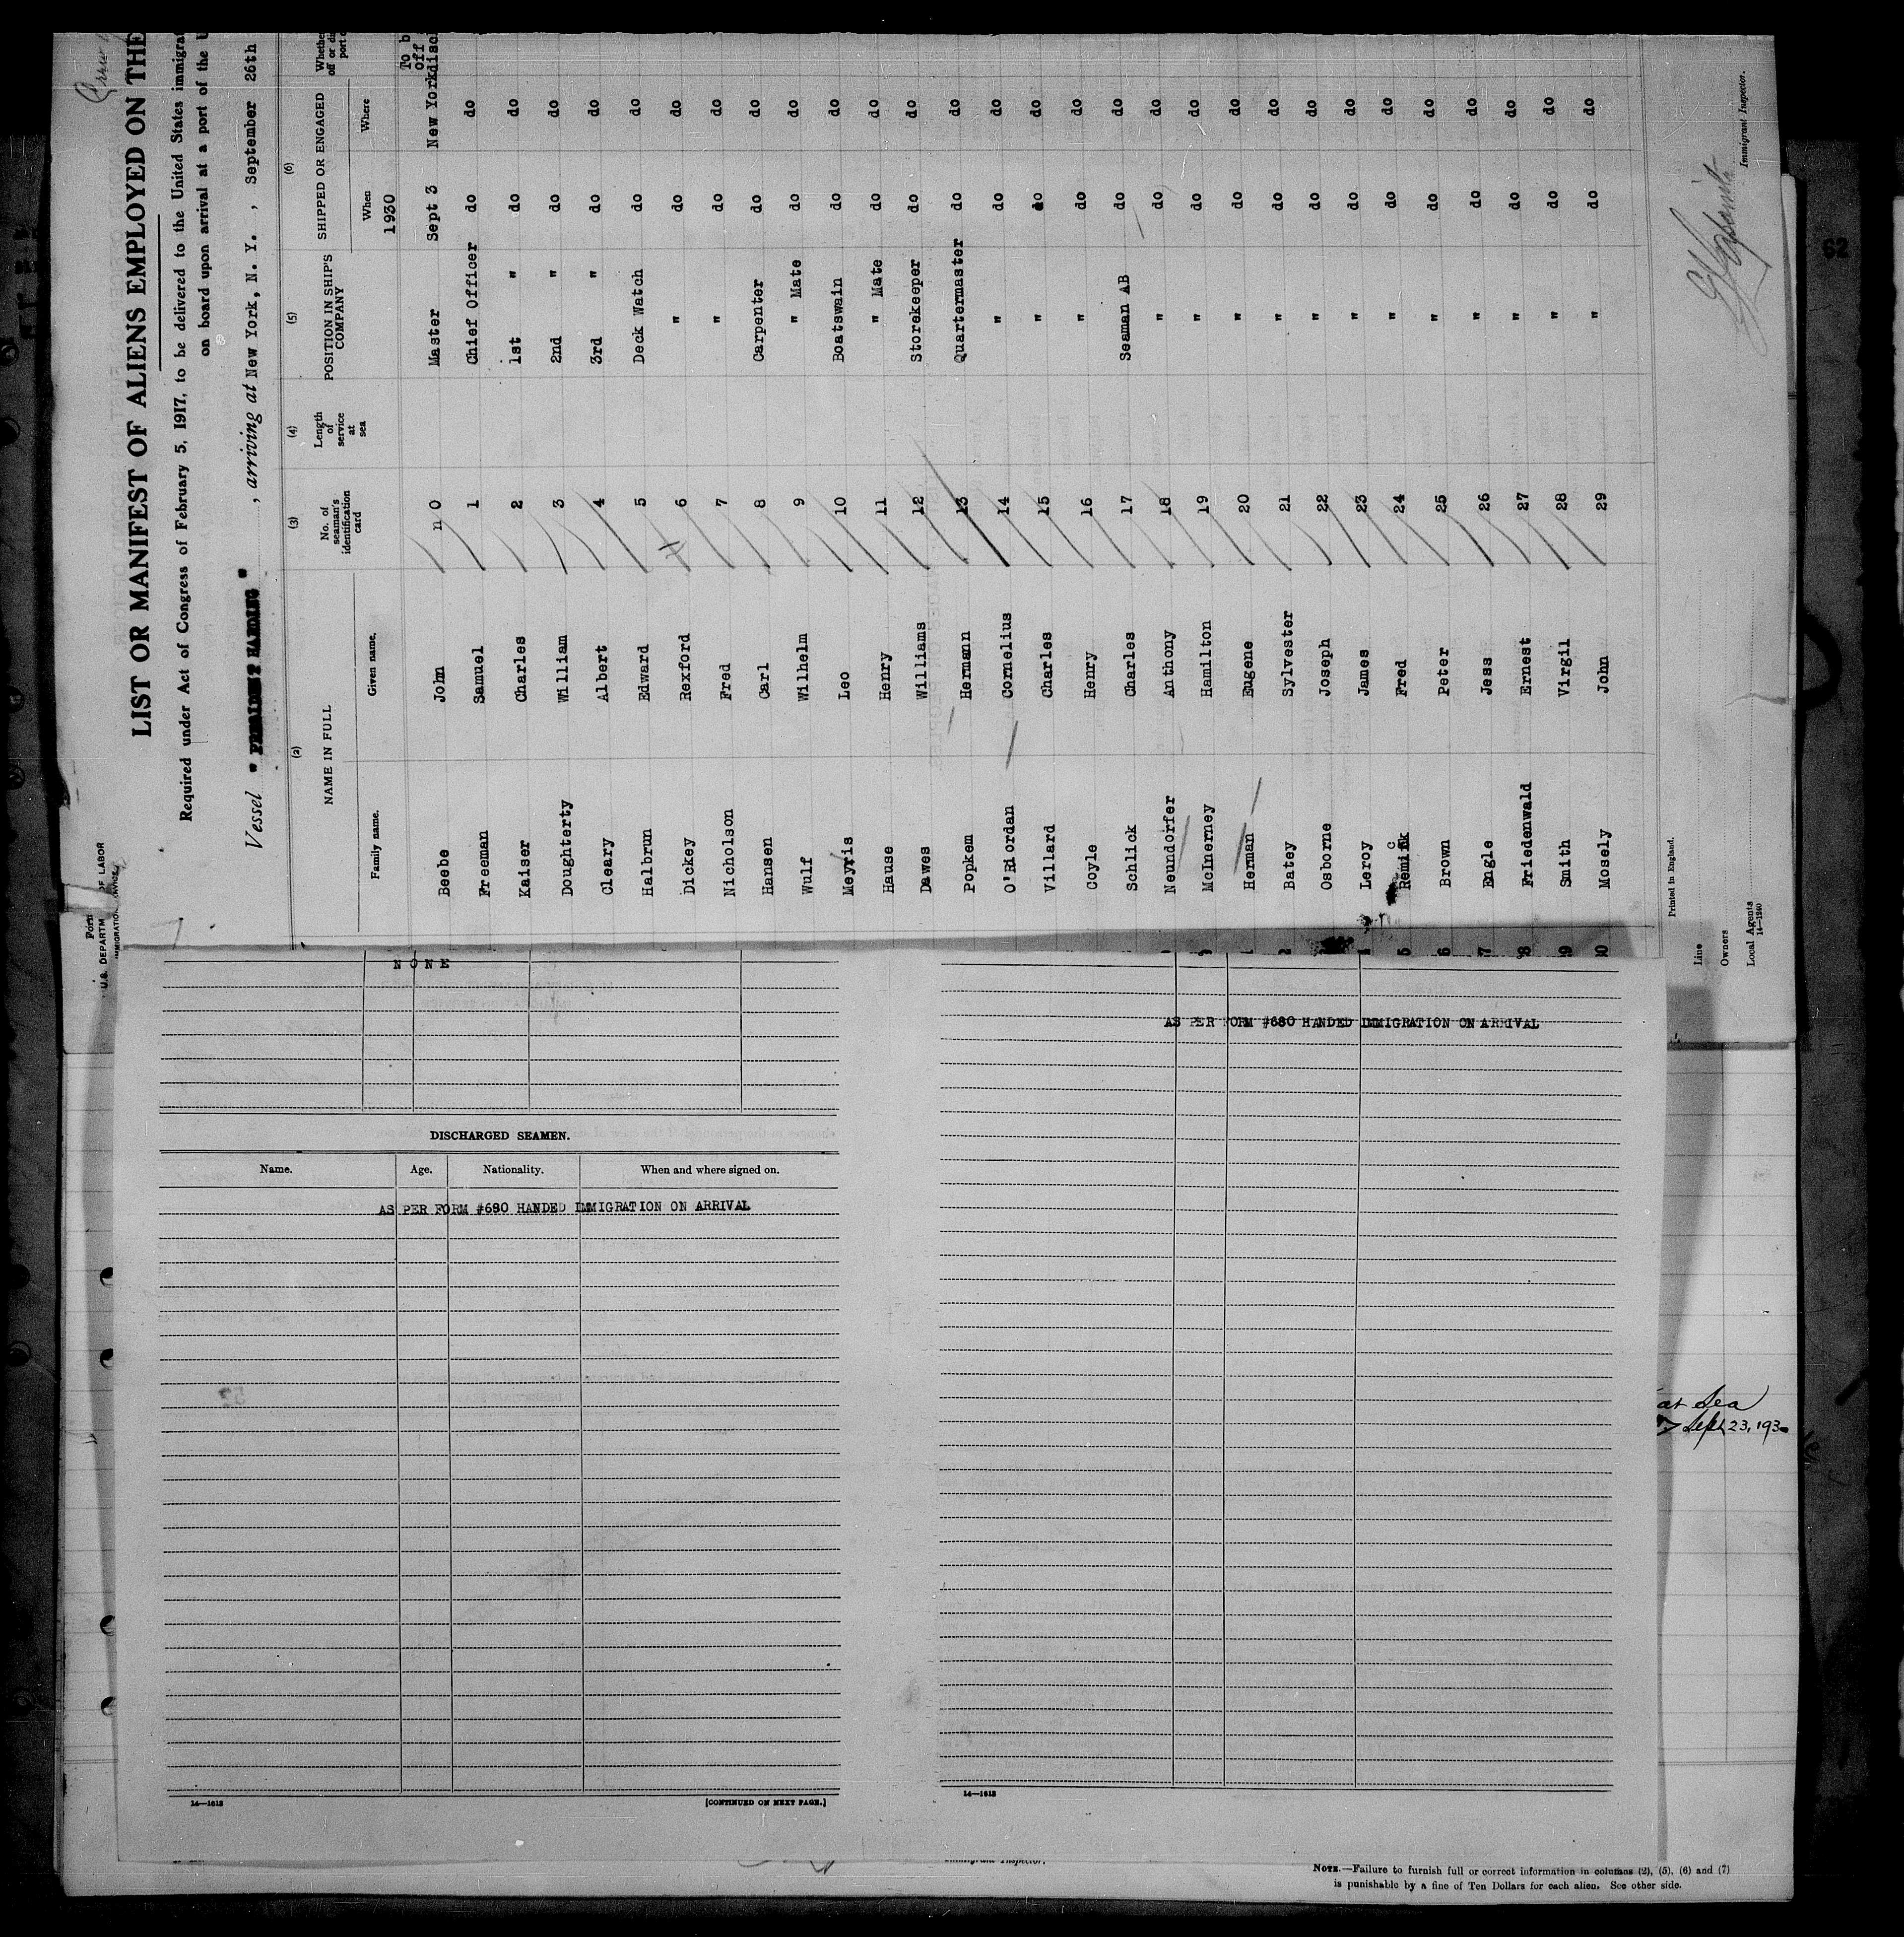 LIST OR MANIFEST OF ALIENS EMPLOYED ON THE
Required under Act of Congress of February 5, 1917, to be delivered to the United States immigrat
on board upon arrival at a port of the U
Vessel " PRESIDENT HARDING " , arriving at New York, N. Y. , September 26th
U.S. DEPARTM OF LABOR
(2) (3) (4) (5) (6)
NAME IN FULL No. of seaman's identification card Length of service at sea POSITION IN SHIP'S COMPANY SHIPPED OR ENGAGED
Family name. Given name. When Where
1930
Beebe John n 0 Master Sept 3 New York
Freeman Samuel 1 Chief Officer do do
Kaiser Charles 2 1st " do do
Doughterty William 3 2nd " do do
Cleary Albert 4 3rd " do do
Halbrun Edward 5 Deck Watch do do
Dickey Rexford 6 " do do
Nicholson Fred 7 " do do
Hansen Carl 8 Carpenter do do
Wulf Wilhelm 9 " Mate do do
Meyris Leo 10 Boatswain do do
Hause Henry 11 " Mate do do
Dawes Williams 12 Storekeeper do do
Popken Hermann 13 Quartermaster do do
O'Riordan Cornelius 14 " do do
Villard Charles 15 " do do
Coyle Henry 16 " do do
Schlick Charles 17 Seaman AB do do
Neundorfer Anthony 18 " do do
McInerney Hamilton 19 " do do
Herman Eugene 20 " do do
Batey Sylvester 21 " do do
Osborne Joseph 22 " do do
Leroy James 23 " do do
Remick Fred 24 " do do
Brown Peter 25 " do do
Engle Jess 26 " do do
Friedenwald Ernest 27 " do do
Smith Virgil 28 " do do
Mosely John 29 " do do
Printed in England.
Line
Owners
Local Agents
14-1240
Immigrant Inspector.
62
NONE
DISCHARGED SEAMEN.
Name. Age. Nationality. When and where signed on.
AS PER FORM #680 HANDED IMMIGRATION ON ARRIVAL
14—1618
[CONTINUED ON NEXT PAGE.]
AS PER FORM #680 HANDED IMMIGRATION ON ARRIVAL
14—1618
at Sea
Sept 23, 193
Immigrant Inspector.
NOTE.—Failure to furnish full or correct information in columns (2), (5), (6) and (7)
is punishable by a fine of Ten Dollars for each alien. See other side.